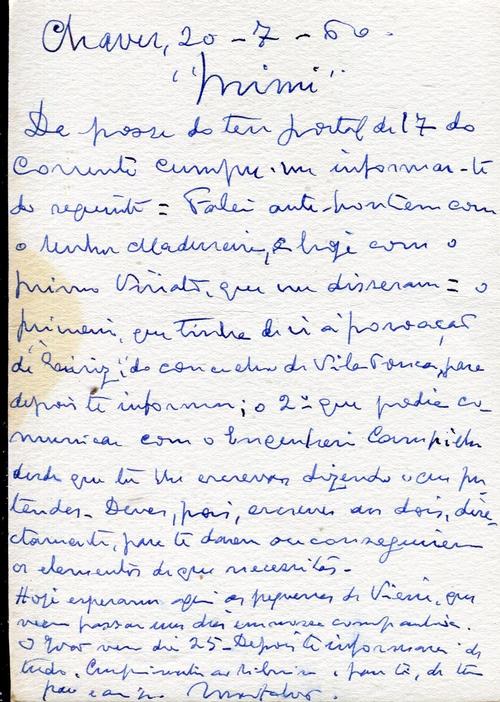 Chaves, 20-7-60.
"Mimi"
De posse do teu postal de 17 do
corrente cumpre-me informar-te
do seguinte = Falei ante-hontem com
o Senhor Madureira, e hoje com o
primo Viriato, que me disseram = o
primeiro, que tinha de ir à povoação
de " ", do concelho de Vila Pouca, para
depois te informar; o 2º que podia co-
municar com o Engenheiro
desde que tu lhe escrevas dizendo o que pre-
tendes. Deves, pois, escrever aos dois, dire-
ctamente, para te darem ou conseguirem
os elementos de que necessitas.
Hoje esperamos aqui as pequenas de que
vem passar uns dias em nossa companhia.
O vem dia 25. Depois te informarei de
tudo. Cumprimentos e para ti, do teu
pae e amigo